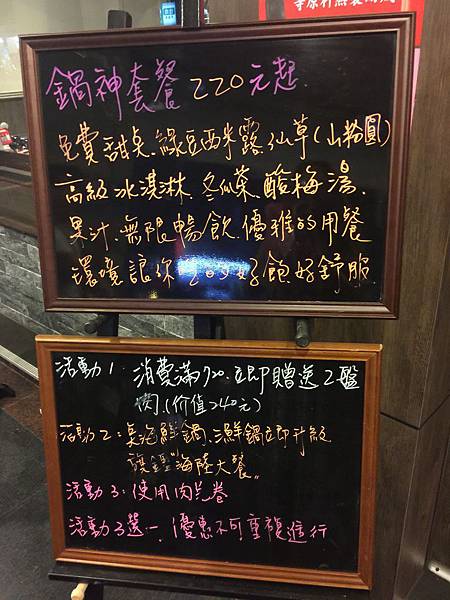 鍋神套餐220元起
免費甜桌.綠豆西米露.仙草(山粉圓)
高級冰淇淋.冬瓜茶.酸梅湯.
果汁.無限暢飲.優雅的用餐
環境讓你 好飽好舒服
活動1:消費滿 立即贈送2盤
肉.(价值240元)
活動2: 海鮮鍋.海鮮鍋立即升級
"海陸大餐"
活動3:使用肉 卷
活動3選一.優惠不可重複進行